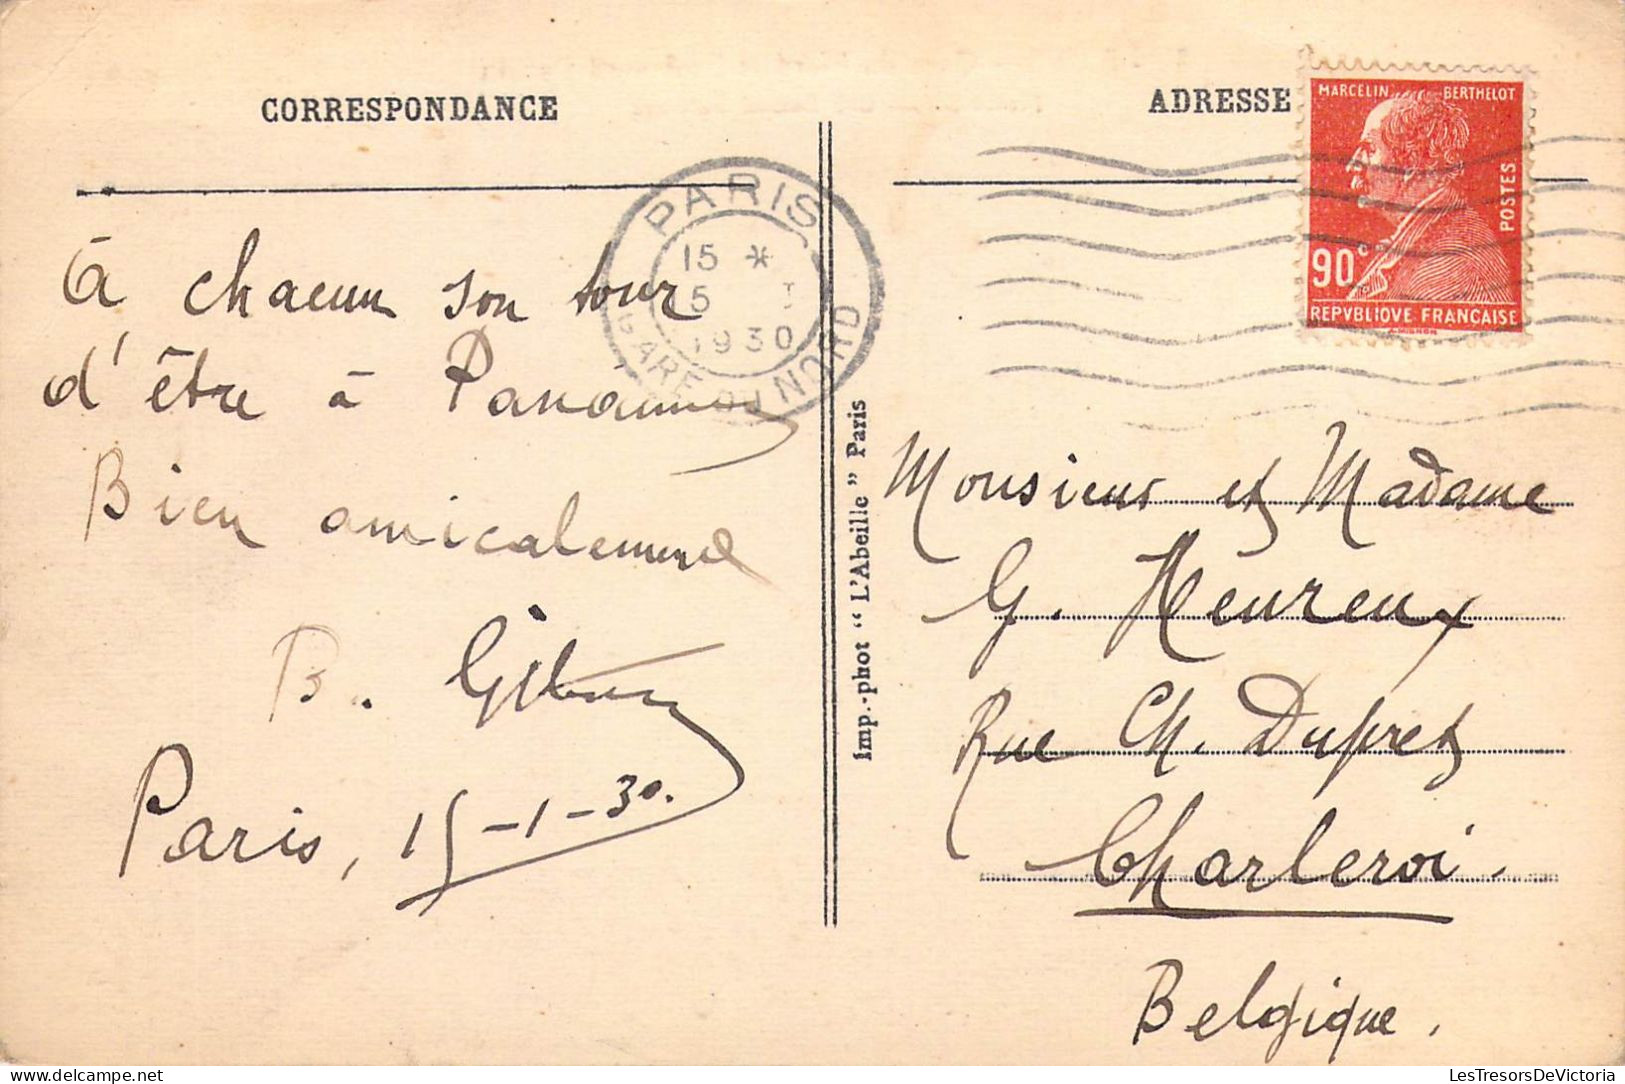 CORRESPONDANCE
ADRESSE
MARCELIN BERTHELOT
POSTES
90c
REPVBLIQVE FRANÇAISE
PARIS
15 *
15 I
1930
GARE DU NORD
à chacun son tour
d'être à Paname
Bien amicalement
B.
Paris, 15-1-30.
Imp.-phot "L'Abeille" Paris
Monsieur et Madame
G. Heureux
Rue Ch. Dupret
Charleroi.
Belgique.
LesTresorsDeVictoria